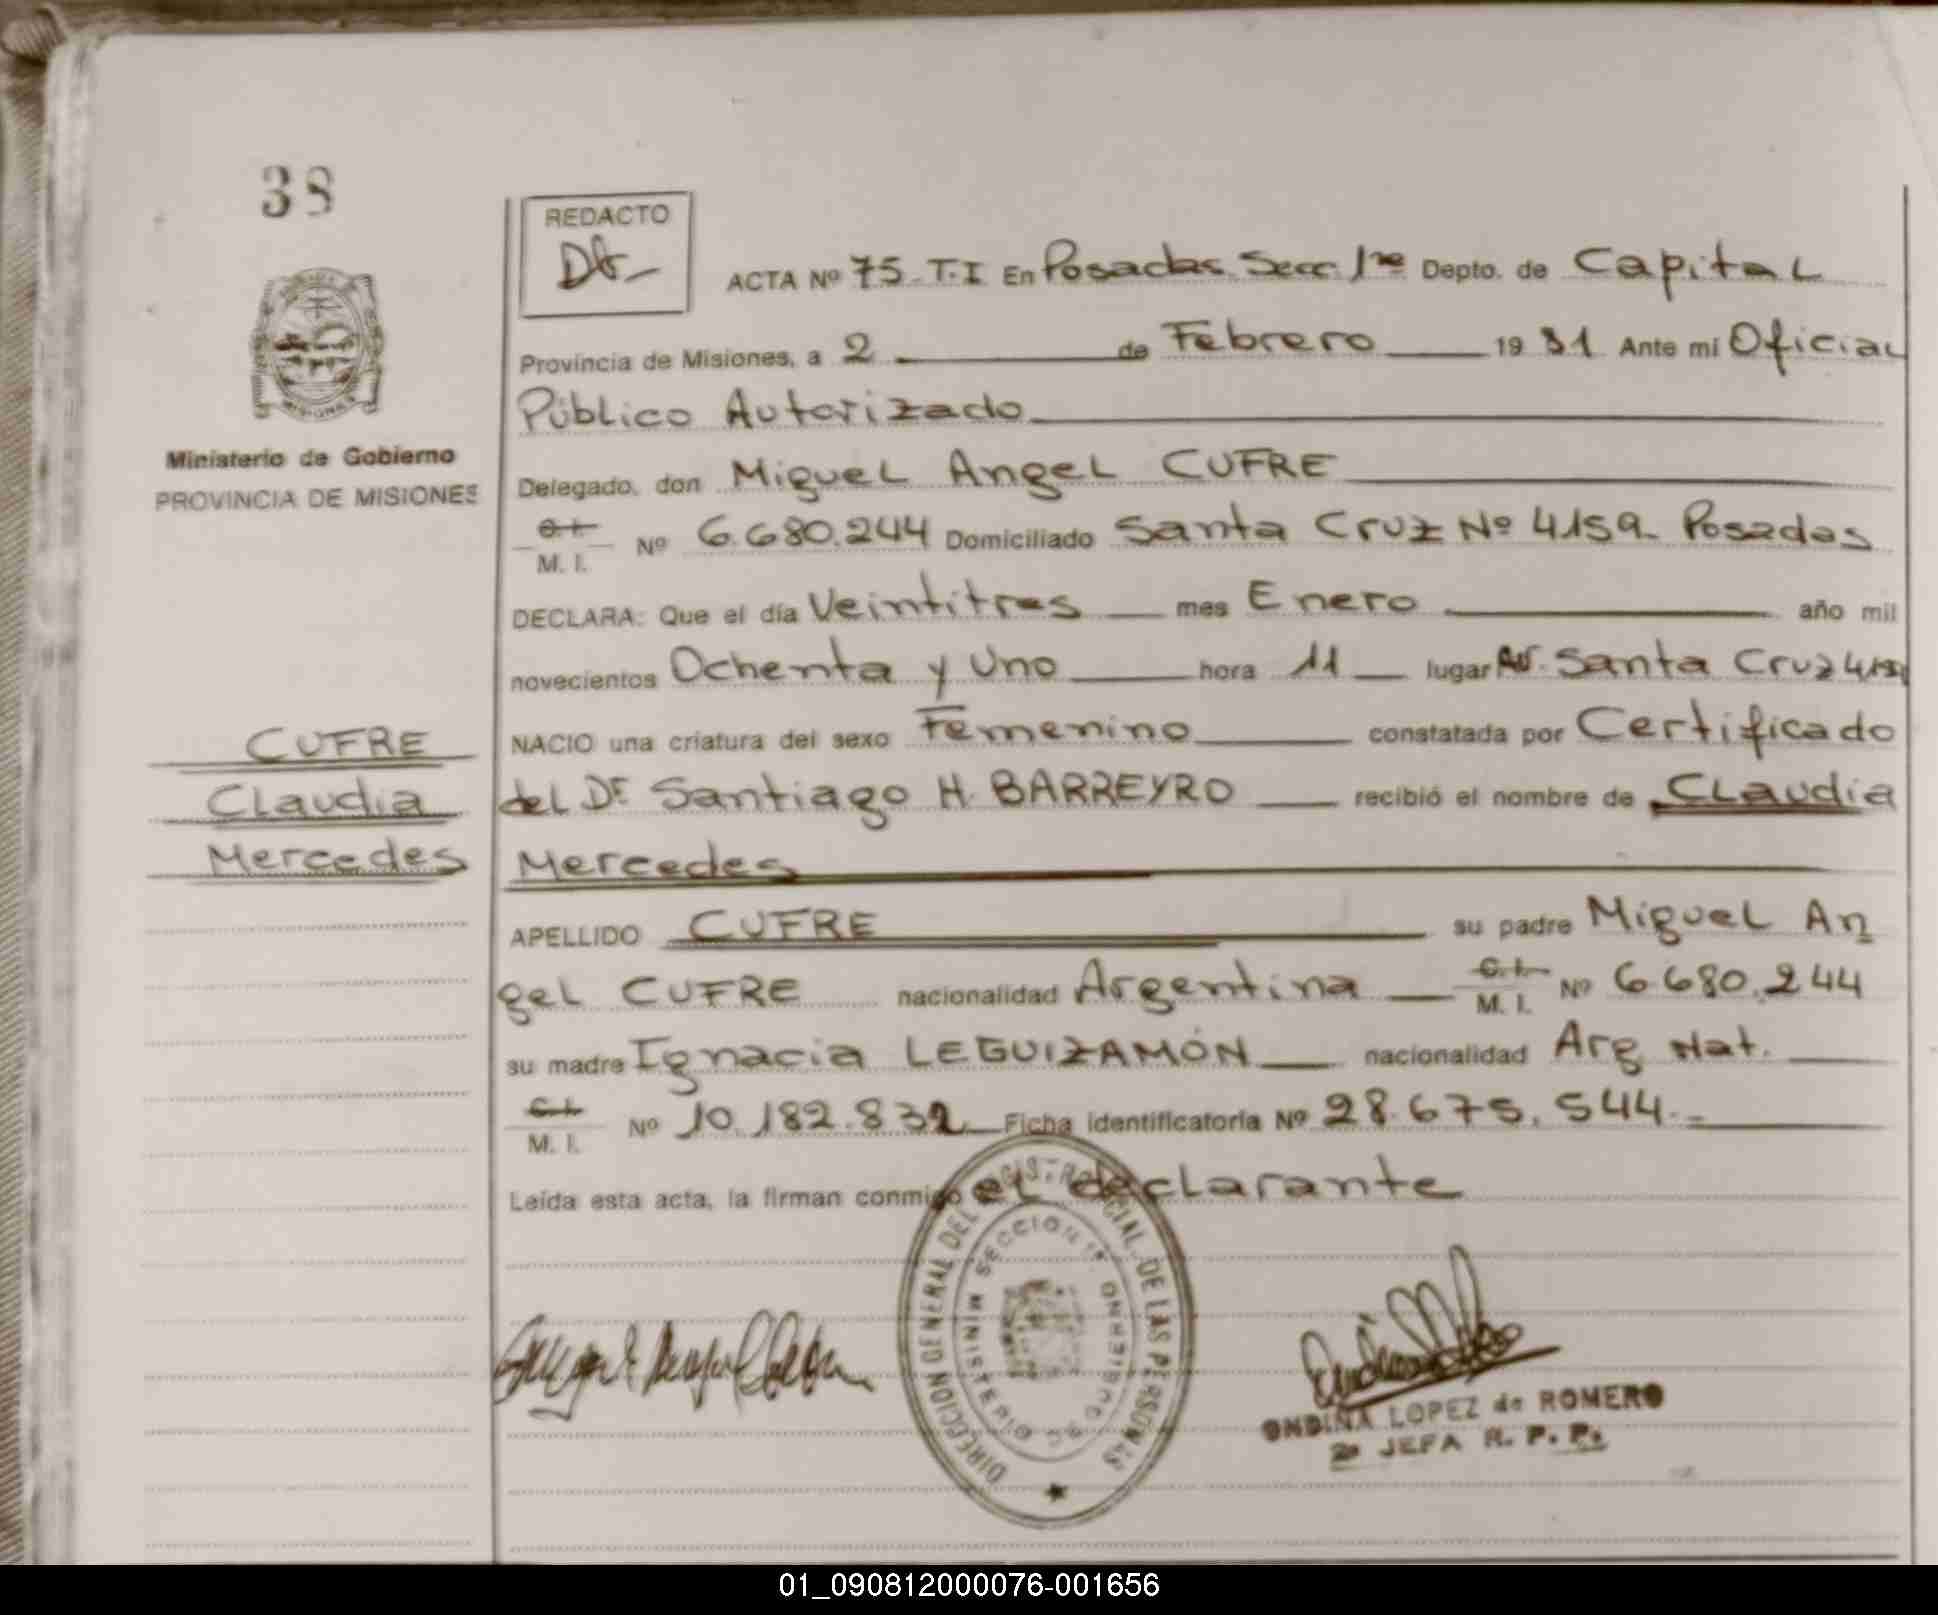 38
REDACTO
ACTA Nº 75-T.I En Posadas Secc. 1ra Depto. de Capital
Provincia de Misiones, a 2 de Febrero 1981 Ante mi Oficial
Público Autorizado
Delegado, don Miguel Angel CUFRE
C.I. M. I. Nº 6.680.244 Domiciliado Santa Cruz Nº 4159- Posadas
Ministerio de Gobierno
PROVINCIA DE MISIONES
DECLARA: Que el día Veintitres mes Enero año mil
novecientos Ochenta y Uno hora 11 lugar Av. Santa Cruz 4159
NACIO una criatura del sexo Femenino constatada por Certificado
del Dr Santiago H. BARREYRO recibió el nombre de Claudia
Mercedes
CUFRE
Claudia
Mercedes
APELLIDO CUFRE su padre Miguel An
gel CUFRE nacionalidad Argentina C.I. M. I. Nº 6.680.244
su madre Ignacia LEGUIZAMÓN nacionalidad Arg Nat.
C.I. M. I. Nº 10.182.832 Ficha identificatoria Nº 28.675.544.-
Leída esta acta, la firman conmigo el declarante
DIRECCION GENERAL DEL REGISTRO PROVINCIAL DE LAS PERSONAS
SECCION 1ª
MINISTERIO DE GOBIERNO
ONDINA LOPEZ de ROMERO
2a JEFA R. P. P.
01_090812000076-001656